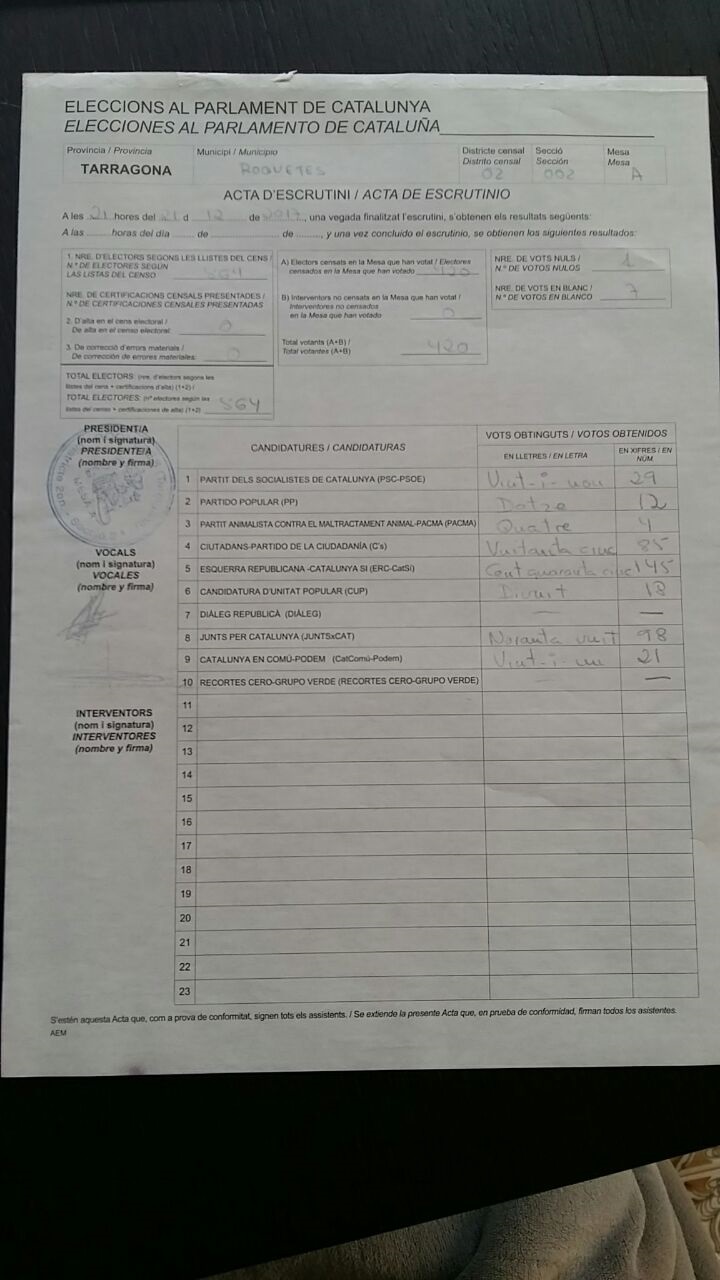 ELECCIONS AL PARLAMENT DE CATALUNYA
ELECCIONES AL PARLAMENTO DE CATALUÑA
Província / Provincia Municipi / Municipio Districte censal Secció Mesa
Distrito censal Sección Mesa
TARRAGONA ROQUETES 02 002 A
ACTA D'ESCRUTINI / ACTA DE ESCRUTINIO
A les 21 hores del 21 d 12 de 2017, una vegada finalitzat l'escrutini, s'obtenen els resultats següents:
A las ........ horas del día ........ de ........ de ........, y una vez concluido el escrutinio, se obtienen los siguientes resultados:
1. NRE. D'ELECTORS SEGONS LES LLISTES DEL CENS /
N.º DE ELECTORES SEGÚN
LAS LISTAS DEL CENSO 564
NRE. DE CERTIFICACIONS CENSALS PRESENTADES /
N.º DE CERTIFICACIONES CENSALES PRESENTADAS
2. D'alta en el cens electoral /
De alta en el censo electoral: 0
3. De correcció d'errors materials /
De corrección de errores materiales: 0
TOTAL ELECTORS: (nre. d'electors segons les
llistes del cens + certificacions d'alta) (1+2) /
TOTAL ELECTORES: (Nº electores según las
listas del censo + certificaciones de alta) (1+2) 564
A) Electors censats en la Mesa que han votat / Electores
censados en la Mesa que han votado 420
B) Interventors no censats en la Mesa que han votat /
Interventores no censados
en la Mesa que han votado 0
Total votants (A+B) /
Total votantes (A+B) 420
NRE. DE VOTS NULS /
N.º DE VOTOS NULOS 1
NRE. DE VOTS EN BLANC /
N.º DE VOTOS EN BLANCO 7
PRESIDENT/A
(nom i signatura)
PRESIDENTE/A
(nombre y firma)
VOCALS
(nom i signatura)
VOCALES
(nombre y firma)
INTERVENTORS
(nom i signatura)
INTERVENTORES
(nombre y firma)
CANDIDATURES / CANDIDATURAS VOTS OBTINGUTS / VOTOS OBTENIDOS
EN LLETRES / EN LETRA EN XIFRES / EN NÚM.
1 PARTIT DELS SOCIALISTES DE CATALUNYA (PSC-PSOE) Vint-i-nou 29
2 PARTIDO POPULAR (PP) Dotze 12
3 PARTIT ANIMALISTA CONTRA EL MALTRACTAMENT ANIMAL-PACMA (PACMA) Quatre 4
4 CIUTADANS-PARTIDO DE LA CIUDADANÍA (C's) Vuitanta cinc 85
5 ESQUERRA REPUBLICANA -CATALUNYA SI (ERC-CatSí) Cent quaranta cinc 145
6 CANDIDATURA D'UNITAT POPULAR (CUP) Divuit 18
7 DIÀLEG REPUBLICÀ (DIÀLEG) — —
8 JUNTS PER CATALUNYA (JUNTSxCAT) Noranta vuit 98
9 CATALUNYA EN COMÚ-PODEM (CatComú-Podem) Vint-i-un 21
10 RECORTES CERO-GRUPO VERDE (RECORTES CERO-GRUPO VERDE) — —
11
12
13
14
15
16
17
18
19
20
21
22
23
S'estén aquesta Acta que, com a prova de conformitat, signen tots els assistents. / Se extiende la presente Acta que, en prueba de conformidad, firman todos los asistentes.
AEM